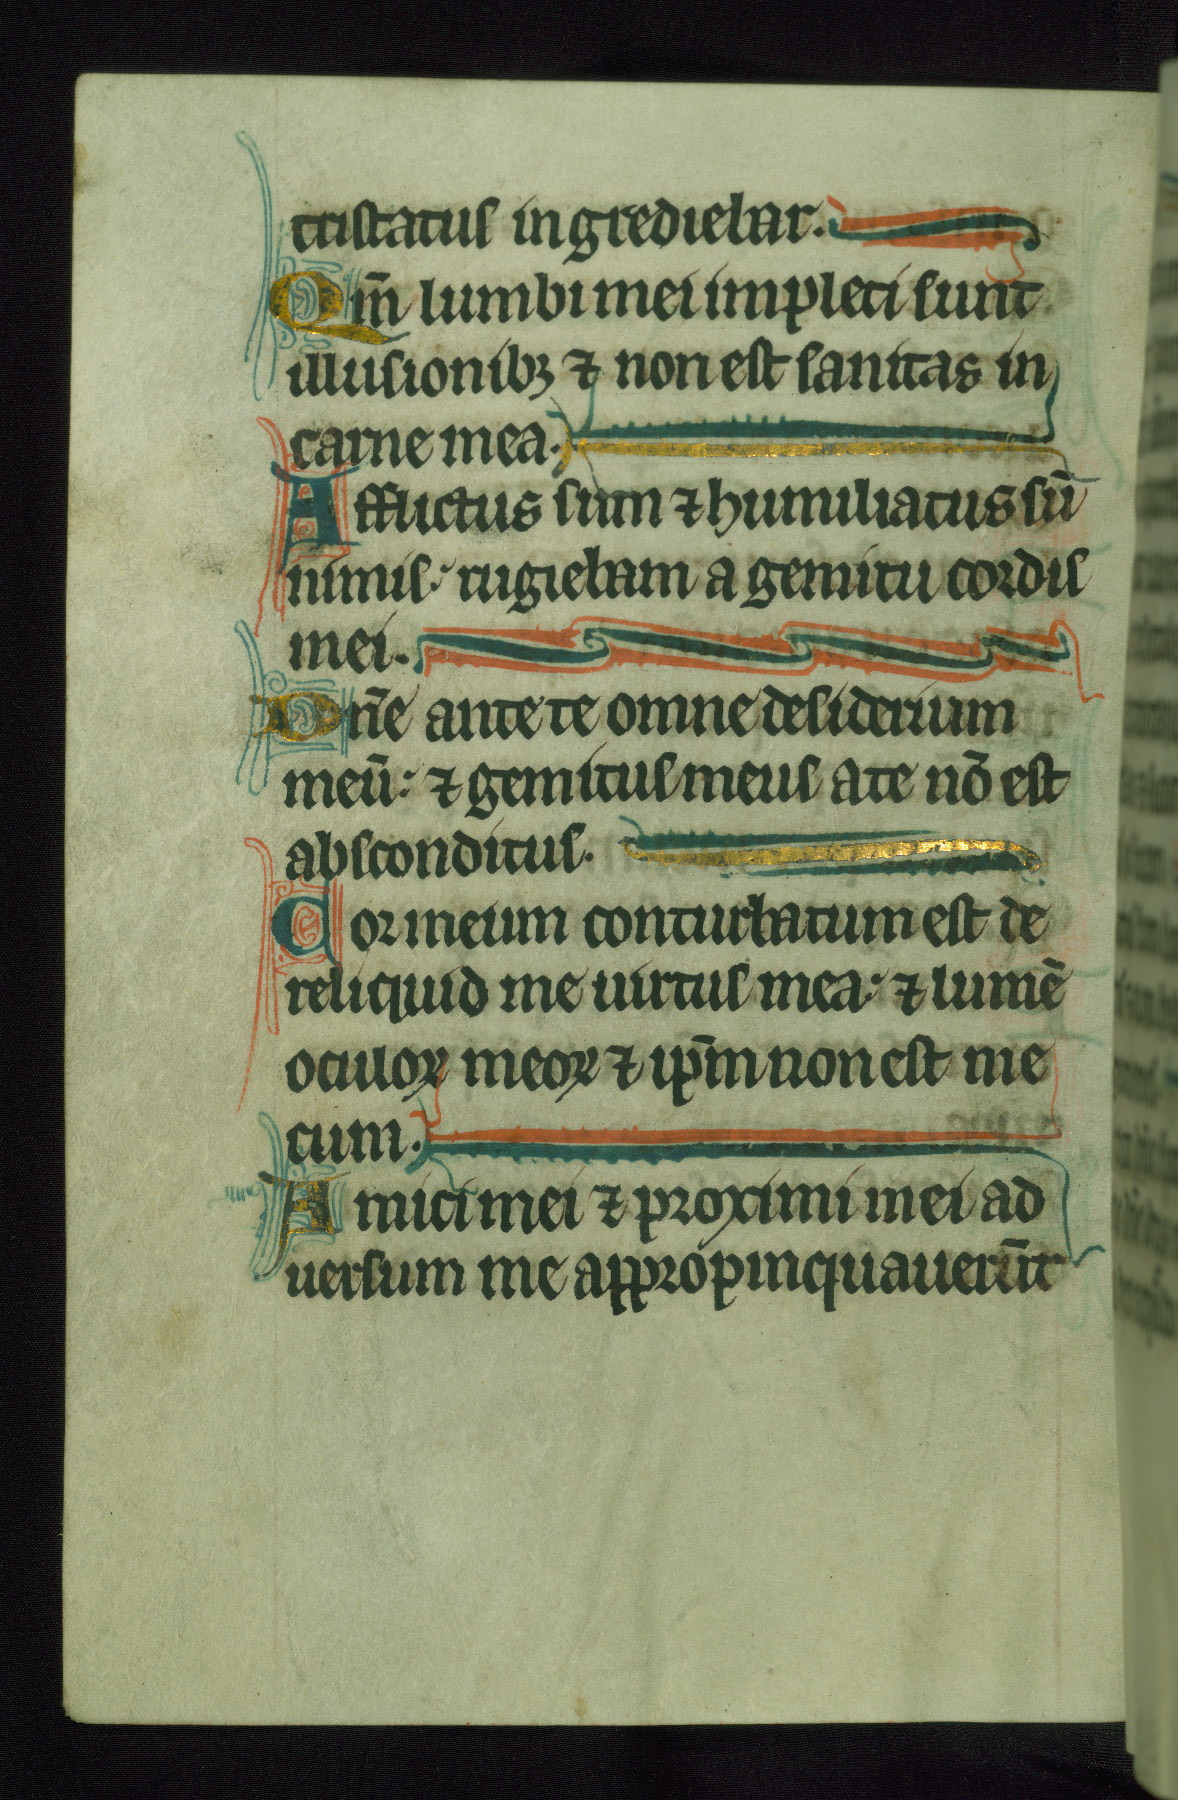 tristatus ingrediebar.
Qm̄ lumbi mei impleti sunt
illusionibꝫ ⁊ non est sanitas in
carne mea.
Afflictus sum ⁊ humiliatus sū
nimis: rugiebam a gemitu cordis
mei.
Dn̄e ante te omne desiderium
meū: ⁊ gemitus meus a te nō est
absconditus.
Cor meum conturbatum est de
reliquid me uirtus mea: ⁊ lumē
oculoꝝ meoꝝ ⁊ ip̄m non est me
cum.
Amici mei ⁊ proximi mei ad
uersum me appropinquauerūt